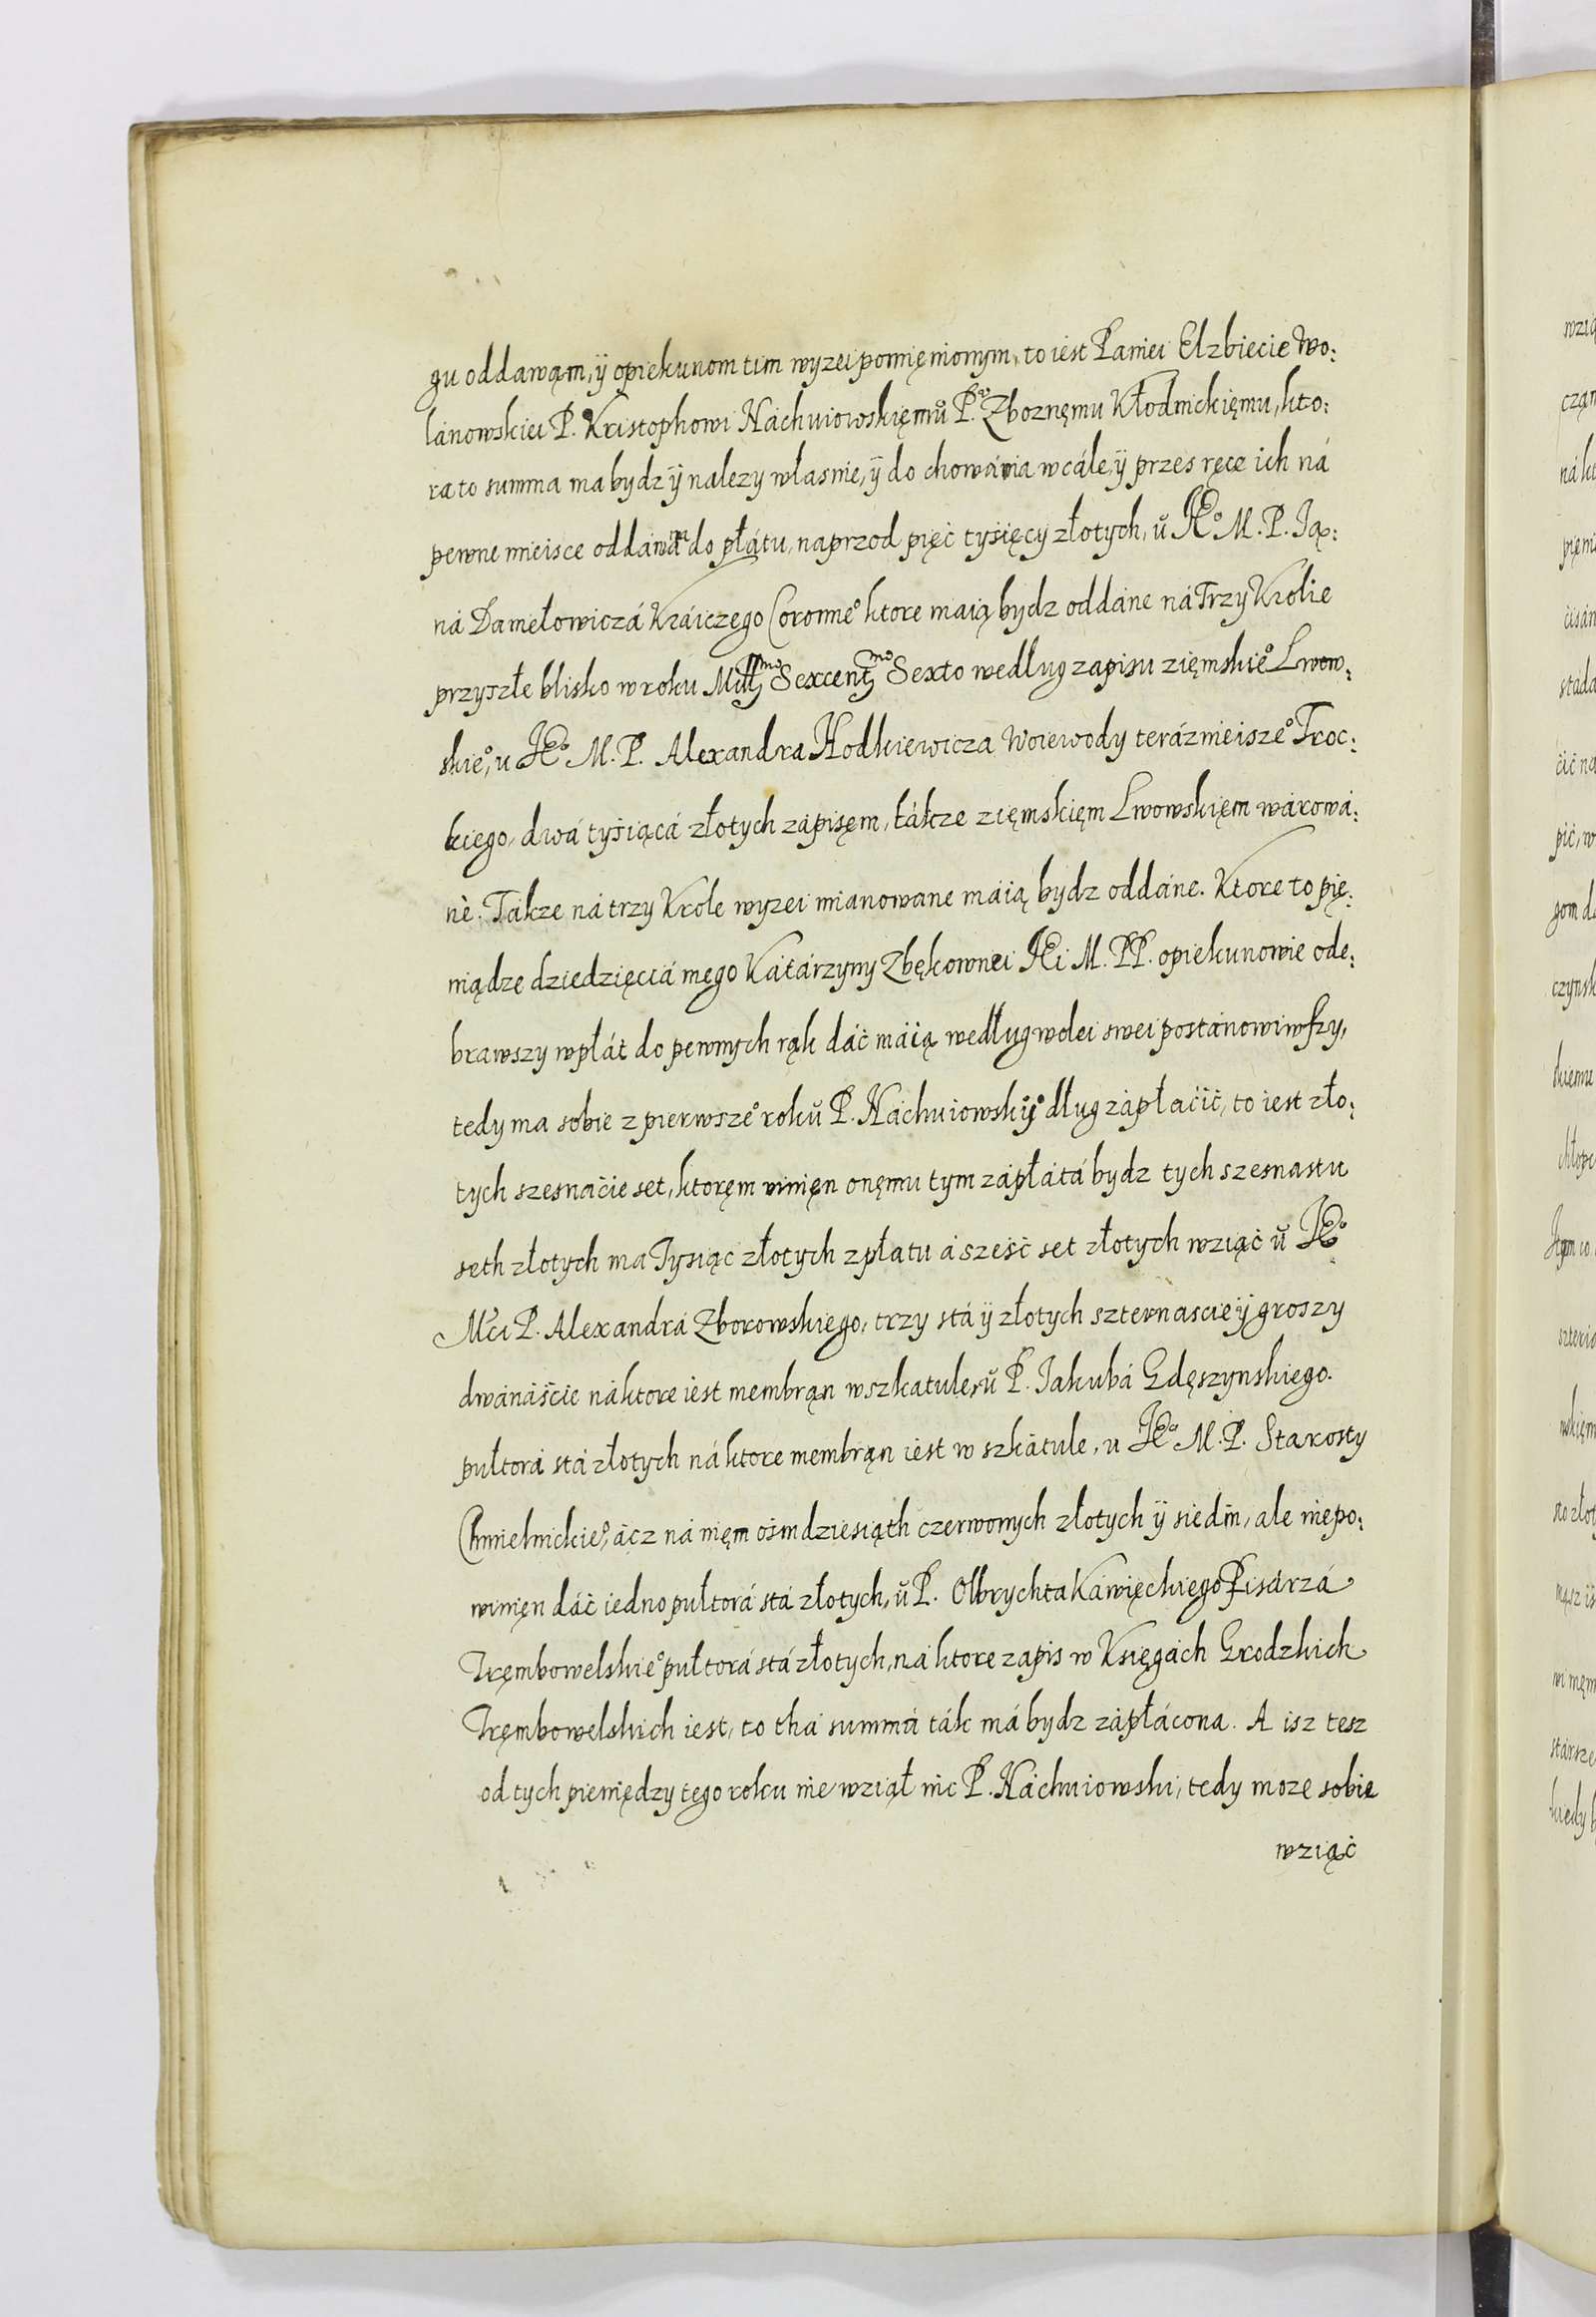 gu oddawąm, ÿ opiekunom tim wyzei pomięnionym, to iest Paniei Elzbiecie Wo:
lánowskiei P. Kristophowi Náchuiowskięmŭ P. Zboznęmu Kłodnickięmu, kto:
ra to summa ma bydz ÿ nalezy własnie, ÿ do chowánia wcále, ÿ przes ręce ich ná
pewne mieisce oddaną do płátu, naprzod pięć tysięcy złotych, ŭ Jº M. P. Ją:
ná Daniełowiczá Kráiczego Coronneº ktore maią bydz oddáne ná Trzy Krolie
przyszłe blisko w roku Mill̃mo Sexcent̃mo Sexto według zapisu zięmskieº Lwow:
skieº, u Jº M. P. Alexandra Hodkiewicza Woiewody terázmieiszeº Troc:
kiego, dwá tyśiącá złotych zápisęm, tákze zięmskięm Lwowskięm wárowá:
nè. Tákze ná trzy Krole wyzei miánowane máią bydz oddáne. Ktore to pię:
niądze dziedzięciá mego Kátárzyny Zbękownei Ji M. PP. opiekunowie ode:
brawszy wpłát do pewnych rąk dáć máią według wolei swei postánowiwszy,
tedy ma sobie z pierwszeº rokŭ P. Náchuiowskÿ dług zápłáćić, to iest zło:
tych szesnaćie set, ktoręm winięn onęmu tym zápłátá bydz tych szesnastu
seth złotych ma Tysiąc złotych z płatu á sześć set złotych wziąć ŭ Jº
Mci P. Alexandrá Zborowskiego, trzy stá ÿ złotych szternascie ÿ groszy
dwánaśćie ná ktore iest membrąn w szkatule, ŭ P. Jakubá Gdęszynskiego.
pułtorá stá złotych ná ktore membrąn iest w szkátule, u Jº M. P. Starosty
Chmielnickieº, ácz ná nięm ośmdziesiąth czerwonych złotych ÿ siedm̃, ale niepo:
winięn dáć iedno pułtorá stá złotych, ŭ P. Olbrychta Káwięckiego Pisárzá
Tręmbowelskieº pułtorá stá złotych, ná ktore zapis w Księgách Grodzkich
Tręmbowelskich iest, to thá summá ták má bydz zápłácona. A isz tesz
od tych pieniędzy tego roku nie wziął nic P. Náchuiowski, tedy moze sobie
wziąć